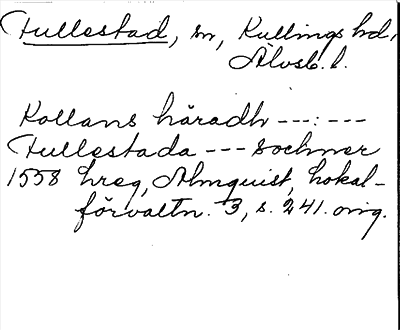 Tullestad, sn, Kullings hd,
Älvsb. l.
Kollans häradh ---:---
Tullestada --- sochner
1558 hreg, Almquist, Lokal-
förvaltn. 3, s. 241. orig.